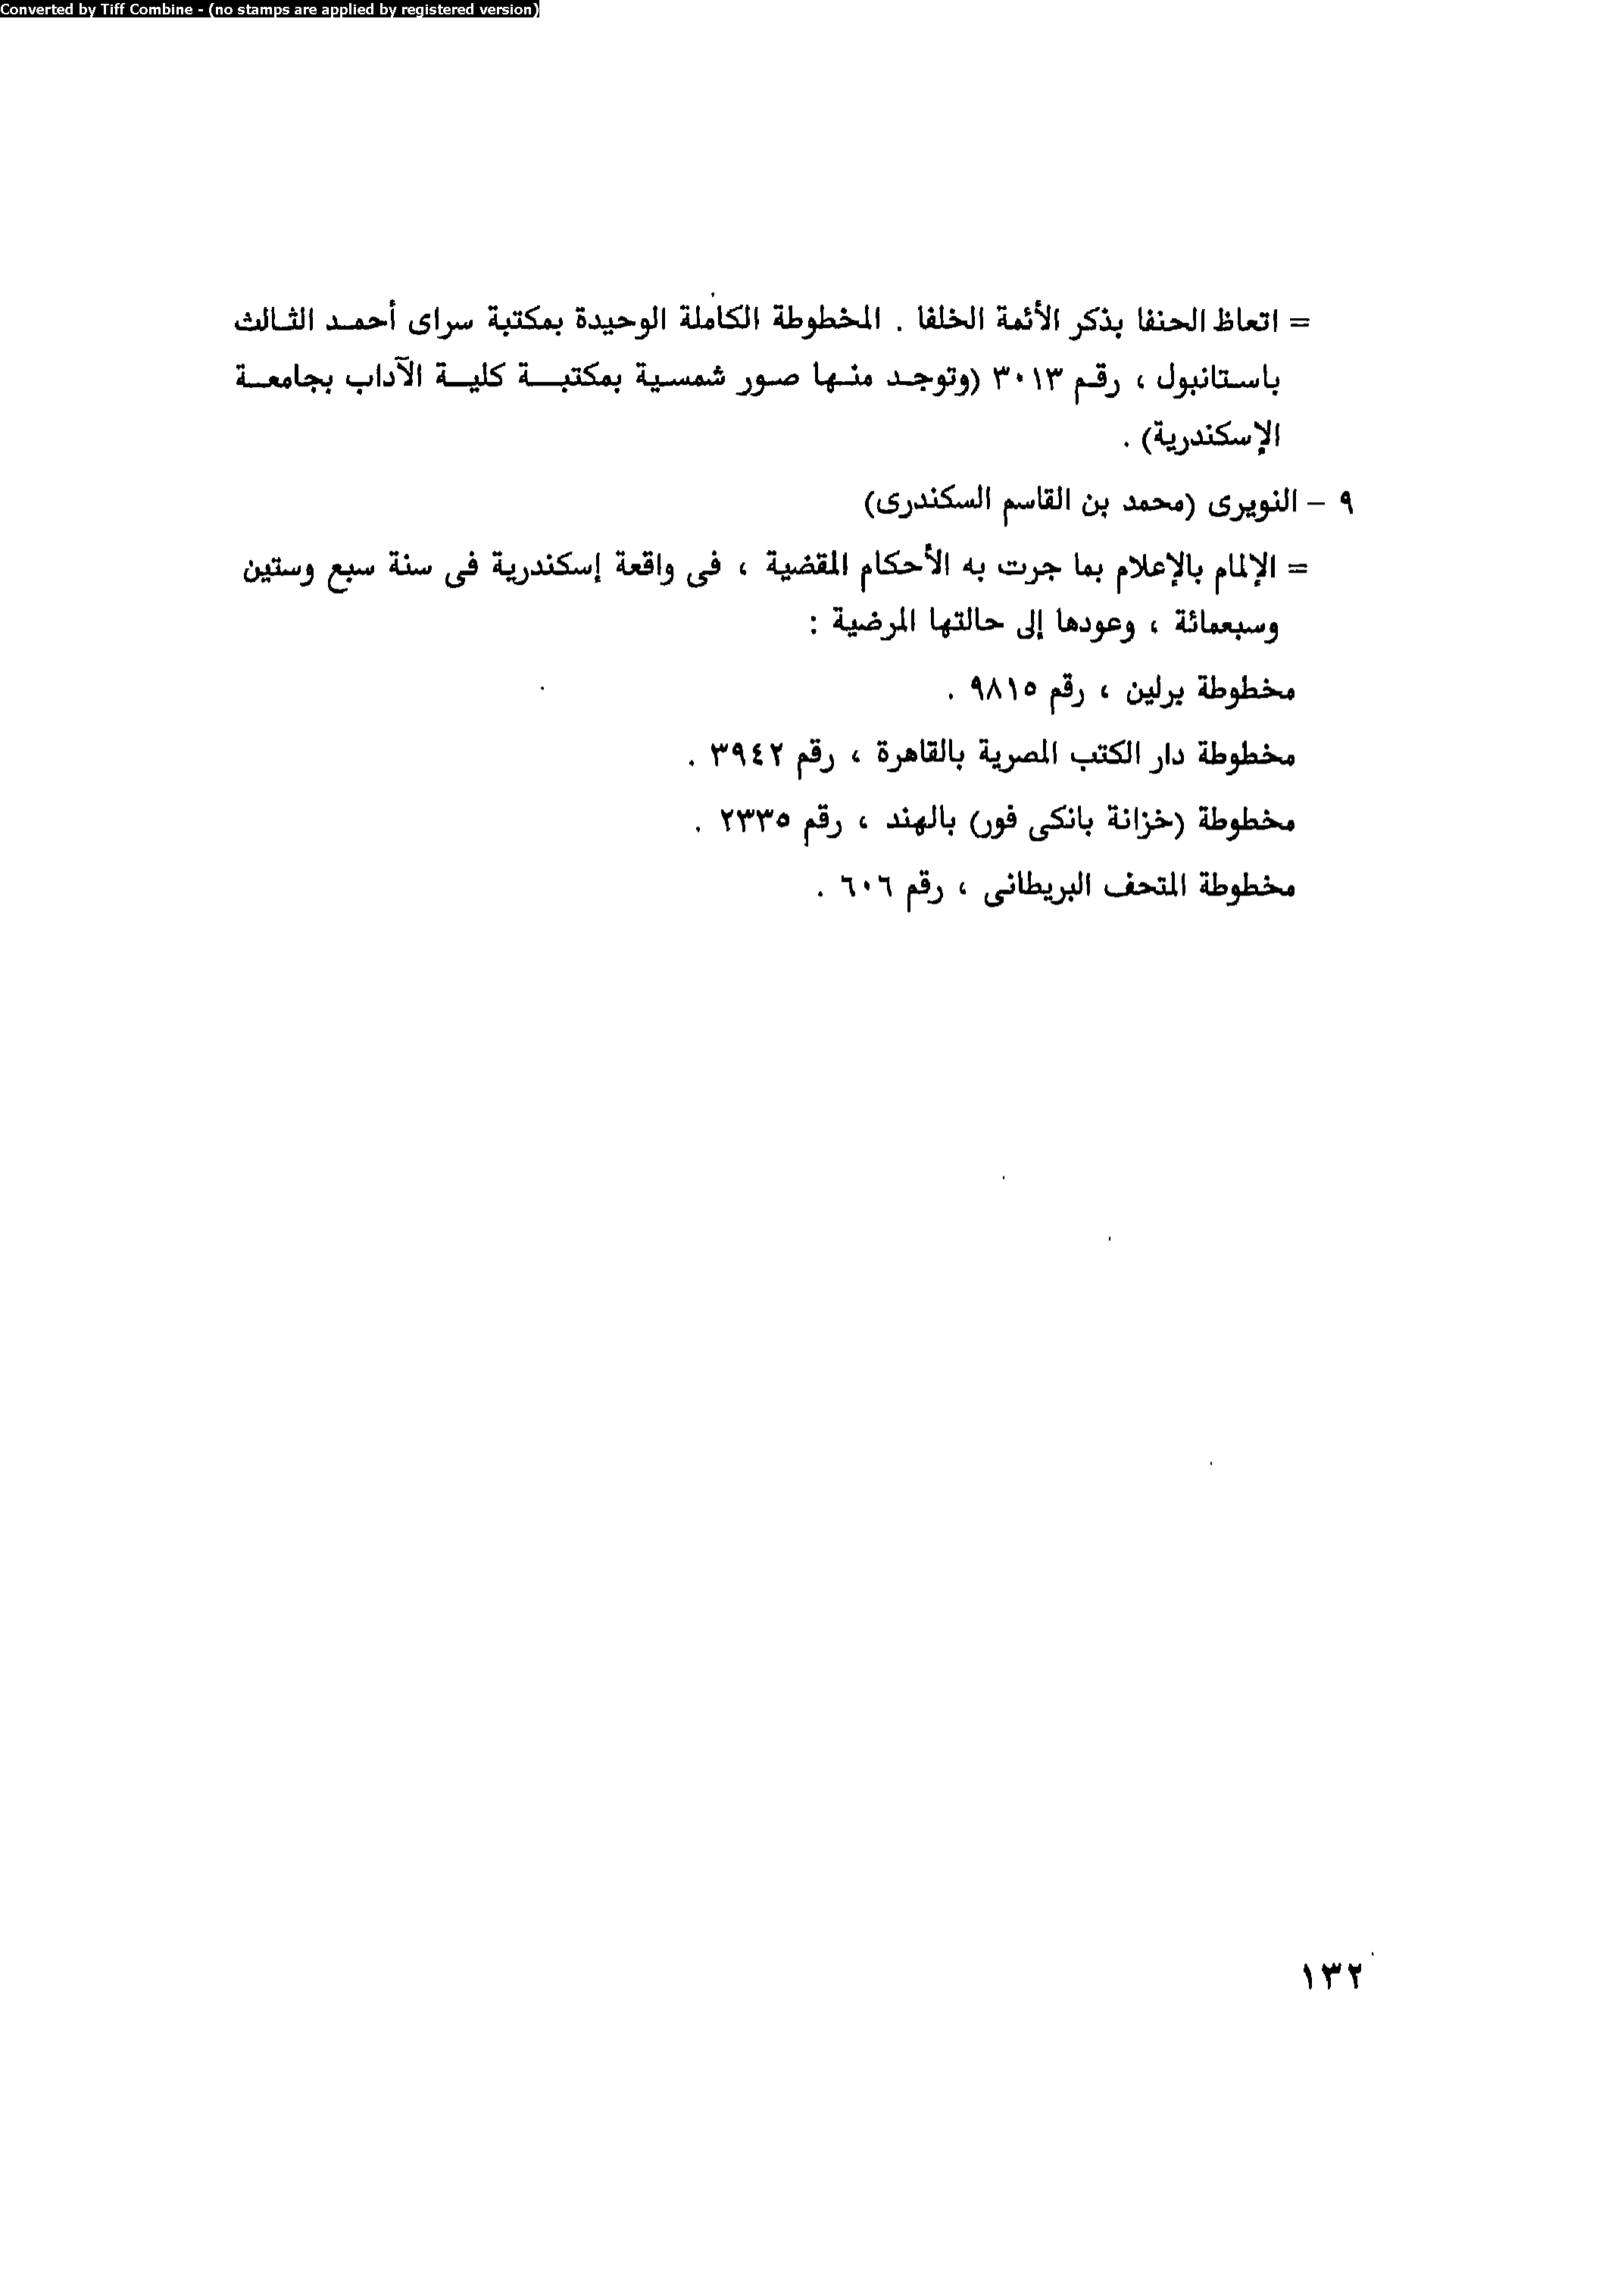 Converted by Tiff Combine - (no stamps are applied by registered version)
= اتعاظ الحنفا بذكر الأئمة الخلفا . المخطوطة الكاملة الوحيدة بمكتبة سراى أحمد الثالث
باستانبول ، رقم ٣٠١٣ (وتوجد منها صور شمسية بمكتبة كلية الآداب بجامعة
الإسكندرية) .
٩ – النويرى (محمد بن القاسم السكندرى)
= الإلمام بالإعلام بما جرت به الأحكام المقضية ، فى واقعة إسكندرية فى سنة سبع وستين
وسبعمائة ، وعودها إلى حالتها المرضية :
مخطوطة برلين ، رقم ٩٨١٥ .
مخطوطة دار الكتب المصرية بالقاهرة ، رقم ٣٩٤٢ .
مخطوطة (خزانة بانكى فور) بالهند ، رقم ٢٣٣٥ .
مخطوطة المتحف البريطانى ، رقم ٦٠٦ .
١٣٢